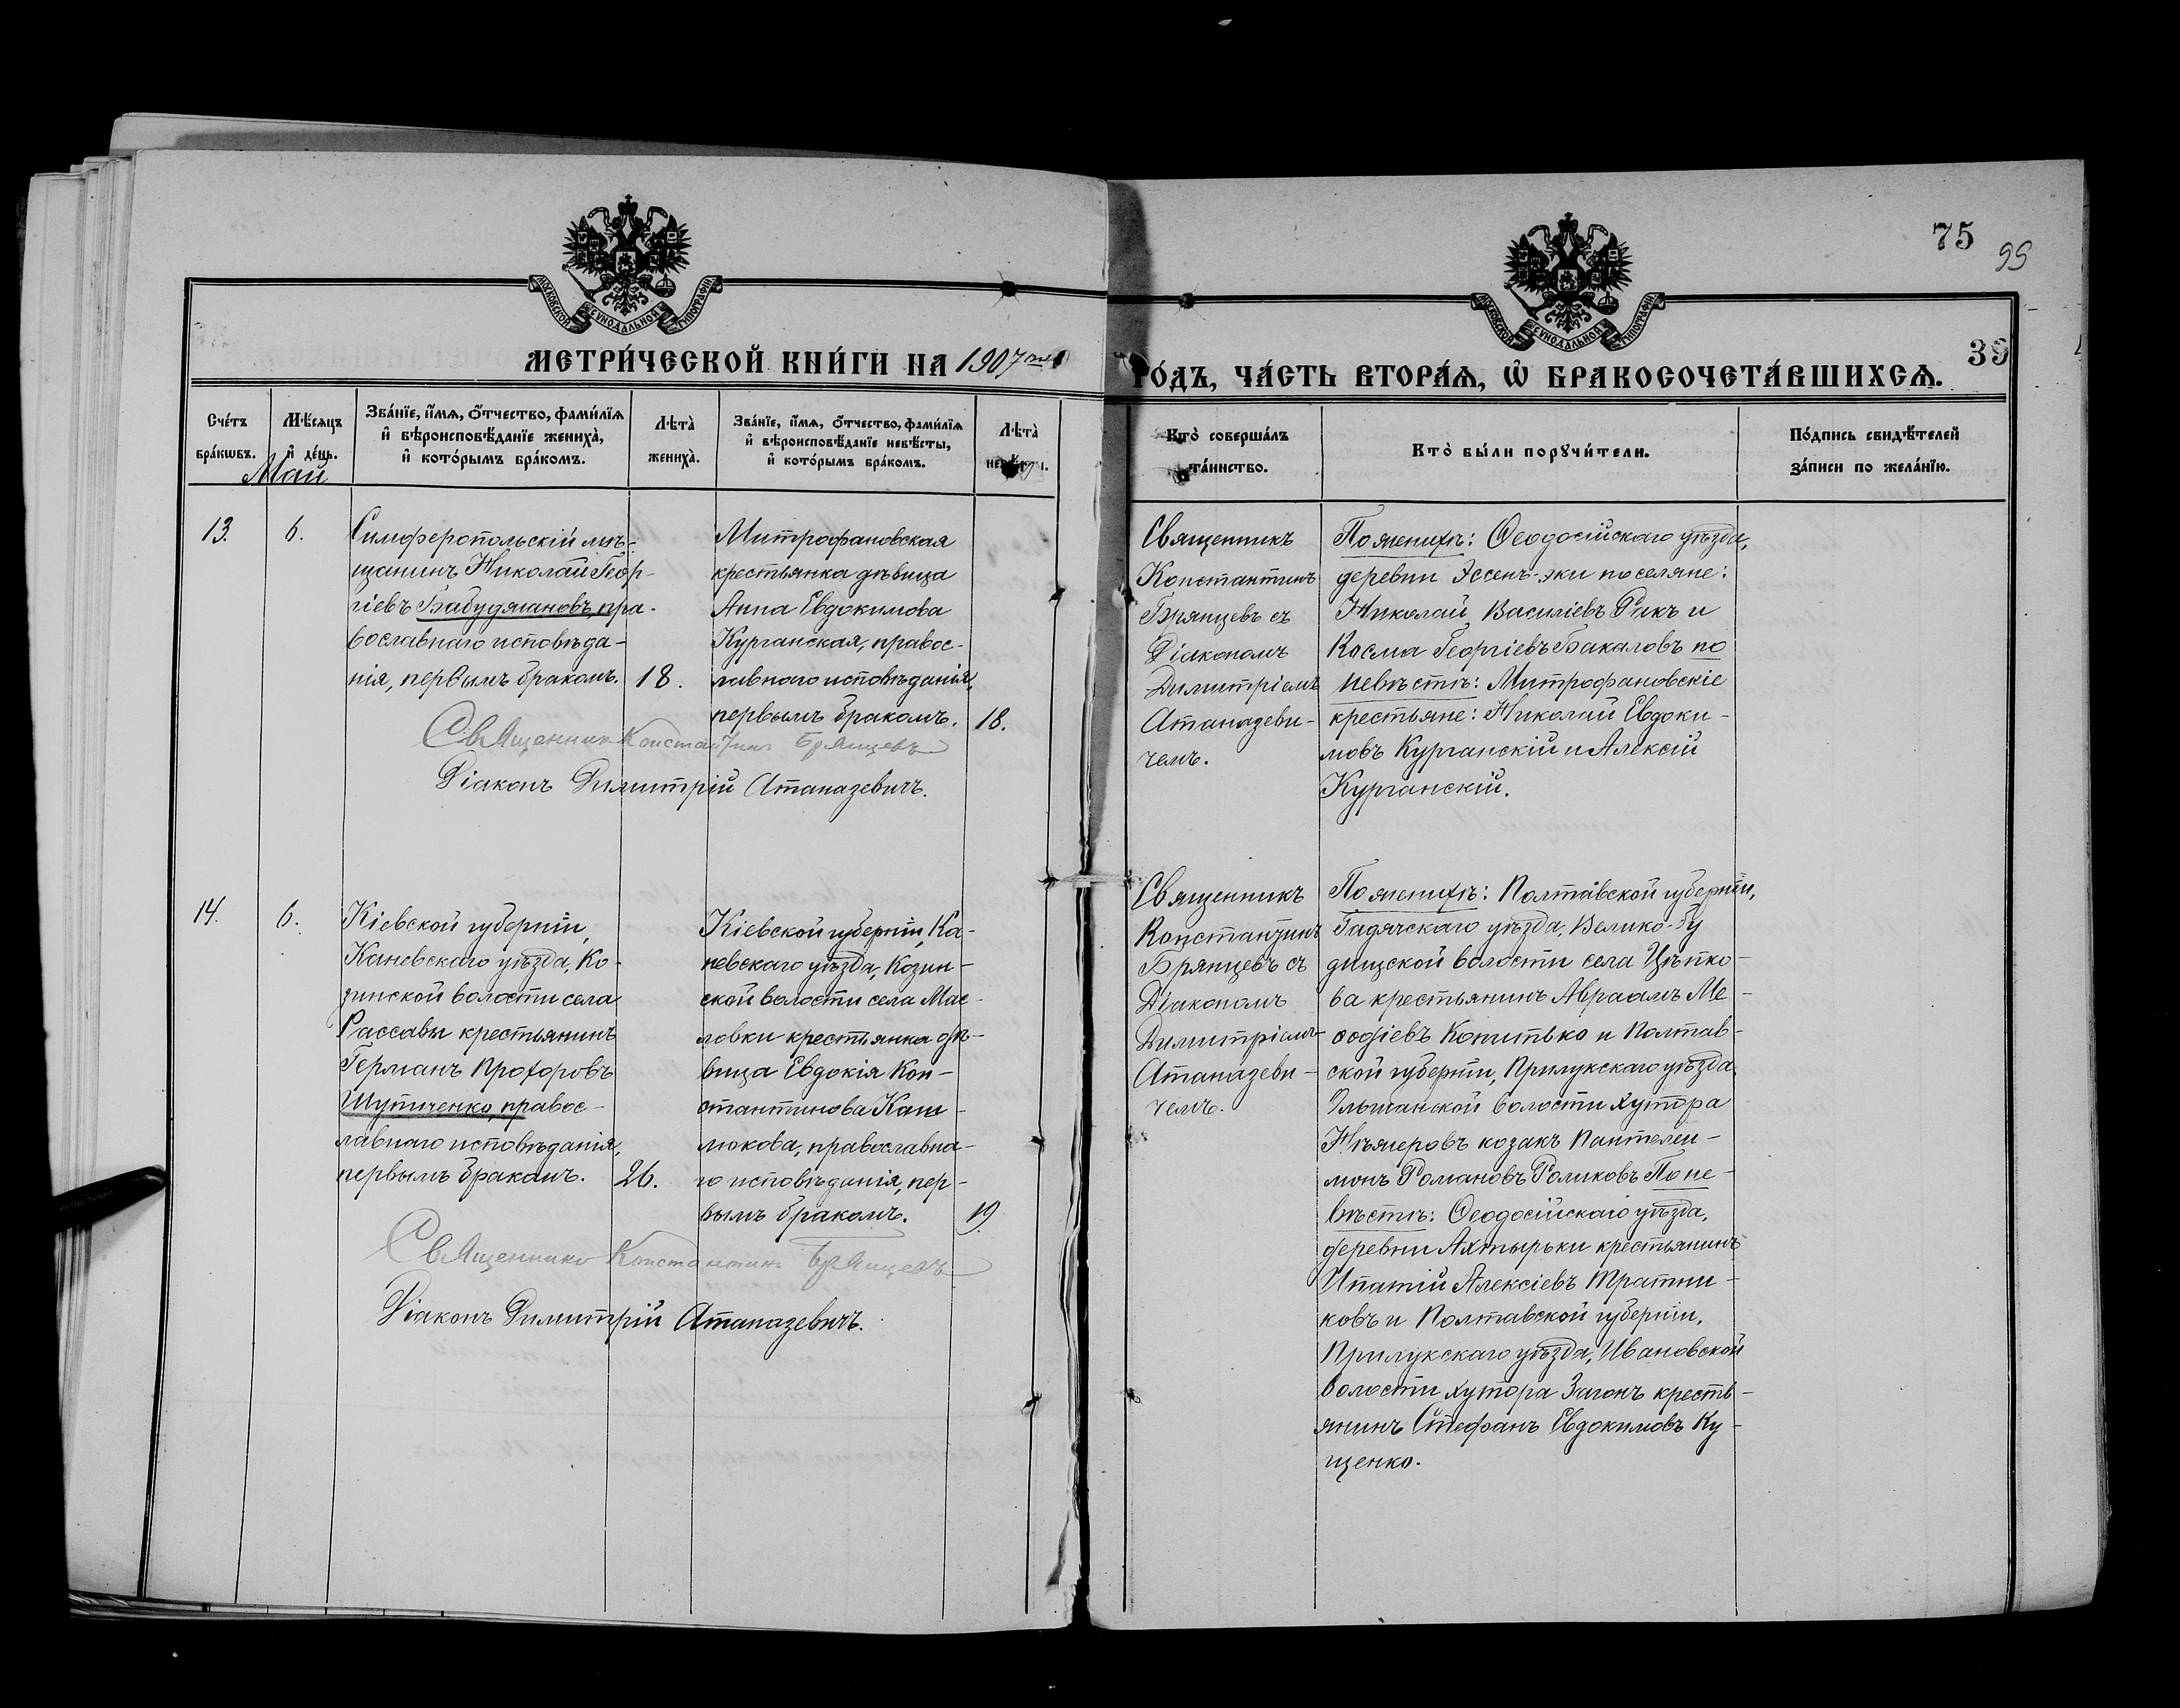 75
99
МОСКОВСКОЙ СѴНОДАЛЬНОЙ ТИПОГРАФІИ
МОСКОВСКОЙ СѴНОДАЛЬНОЙ ТИПОГРАФІИ
МЕТРИ́ЧЕСКОЙ КНИ́ГИ НА 1907
ГО́ДЪ, ЧА́СТЬ ВТОРА́Ѧ, Ѡ҆ БРАКОСОЧЕТА́ВШИХСѦ.
39
Сче́тъ бра́кѡвъ.
Мѣ́сяцъ и҆ де́нь.
Зва́нїе, и҆́мѧ, ѻ҆́тчество, фами́лїѧ и҆ вѣроисповѣ́данїе жениха̀, и҆ кото́рымъ бра́комъ.
Лѣта̀ жениха̀.
Зва́нїе, и҆́мѧ, ѻ҆́тчество, фами́лїѧ и҆ вѣроисповѣ́данїе невѣ́сты, и҆ кото́рымъ бра́комъ.
Лѣта̀ невѣ́сты.
Кто̀ соверша́лъ та́инство.
Кто̀ бы́ли порꙋчи́тели.
По́дпись свидѣ́телей за́писи по жела́нїю.
Май
13.
6.
Симферопольскій мѣ-
щанинъ Николай Геор-
гіевъ Бабуджановъ, пра-
вославнаго исповѣда-
нія, первымъ бракомъ.
18.
Митрофановская
крестьянка дѣвица
Анна Евдокимова
Курганская, правос-
лавнаго исповѣданія,
первымъ бракомъ.
18.
Священникъ Константинъ Брянцевъ
Діаконъ Димитрій Атаназевичъ.
Священникъ
Константинъ
Брянцевъ съ
Діакономъ
Димитріемъ
Атаназеви-
чемъ.
По женихѣ: Ѳеодосійскаго уѣзда,
деревни Эссенъ-эки поселяне:
Николай Василіевъ Ракъ и
Косма Георгіевъ Бакаловъ по
невѣстѣ: Митрофановскіе
крестьяне: Николай Евдоки-
мовъ Курганскій и Алексій
Курганскій.
14.
6.
Кіевской губерніи,
Каневскаго уѣзда, Ко-
зинской волости села
Рассавы крестьянинъ
Германъ Прохоровъ
Шутиченко, правос-
лавнаго исповѣданія,
первымъ бракомъ.
26.
Кіевской губерніи, Ка-
невскаго уѣзда, Козин-
ской волости села Мас-
ловки крестьянка дѣ-
вица Евдокія Кон-
стантинова Каш-
люкова, православна-
го исповѣданія, пер-
вымъ бракомъ.
19.
Священникъ Константинъ Брянцевъ
Діаконъ Димитрій Атаназевичъ.
Священникъ
Константинъ
Брянцевъ съ
Діакономъ
Димитріемъ
Атаназеви-
чемъ.
По женихѣ: Полтавской губерніи,
Гадячскаго уѣзда, Велико-Бу
дищской волости села Цѣпко-
ва крестьянинъ Авраамъ Ме-
ѳодіевъ Копитько и Полтав-
ской губерніи, Прилукскаго уѣзда,
Ольшанской волости хутора
Нѣжеровъ козакъ Пантелеи-
монъ Романовъ Роликовъ По не-
вѣстѣ: Ѳеодосійскаго уѣзда,
деревни Ахтырьки крестьянинъ
Ипатій Алексіевъ Тратни-
ковъ и Полтавской губерніи,
Прилукскаго уѣзда, Ивановской
волости хутора Загонъ кресть-
янинъ Стефанъ Евдокимовъ Ку-
щенко.